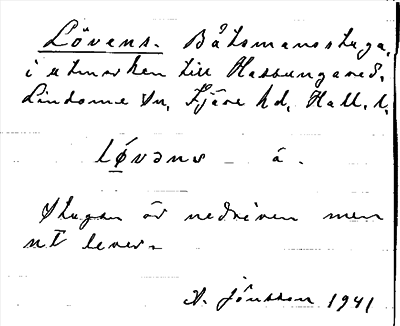 Lövens. Båtsmansstuga,
i utmarken till Hassungared,
Lindome sn, Fjäre hd, Hall. l.
løvəns – á –
Stugan är nedriven men
nt lever –
A. Jönsson 1941